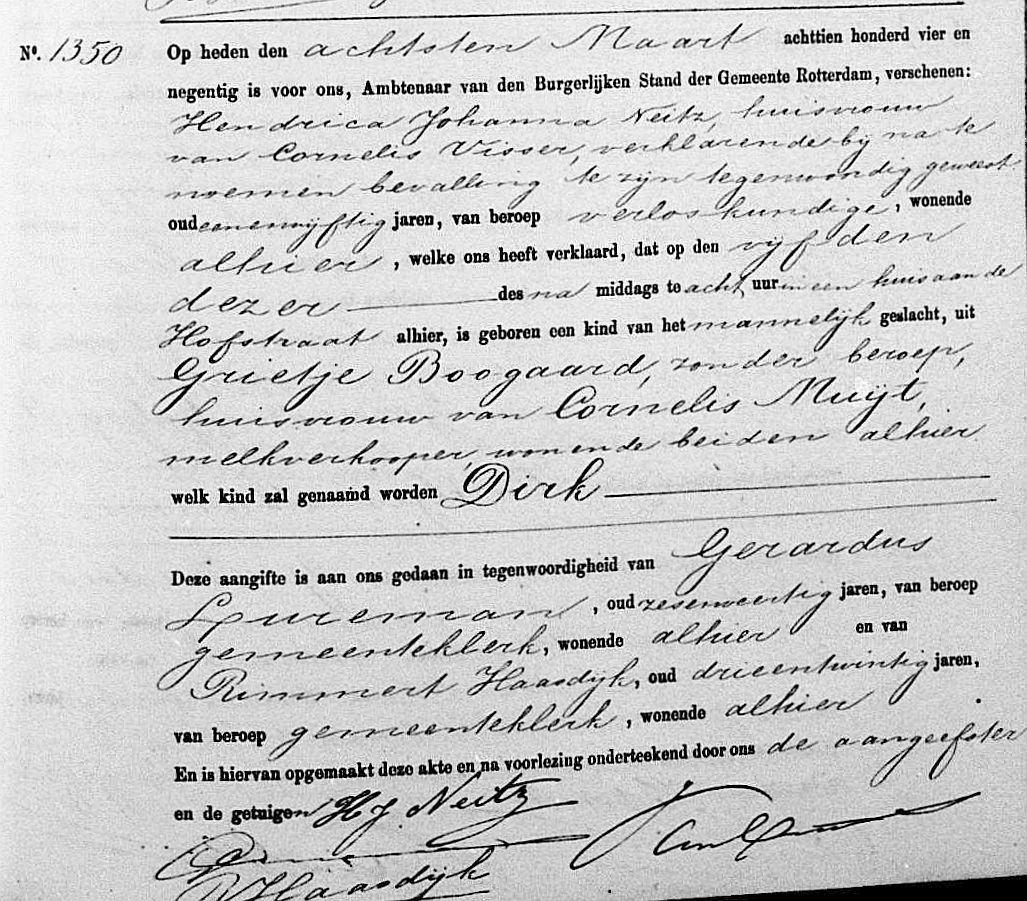 Nº. 1350 Op heden den achtsten Maart achttien honderd vier en
negentig is voor ons, Ambtenaar van den Burgerlijken Stand der Gemeente Rotterdam, verschenen:
Hendrica Johanna Neitz, huisvrouw
van Cornelis Visser, verklarende bij na te
noemen bevalling te zijn tegenwoordig geweest
oud eenenvijftig jaren, van beroep verloskundige, wonende
alhier, welke ons heeft verklaard, dat op den vijfden
dezer des na middags te acht uur in een huis aan de
Hofstraat alhier, is geboren een kind van het mannelijk geslacht, uit
Grietje Boogaard, zonder beroep,
huisvrouw van Cornelis Muijt,
melkverkooper, wonende beiden alhier.
welk kind zal genaamd worden Dirk
Deze aangifte is aan ons gedaan in tegenwoordigheid van Gerardus
, oud zesenveertig jaren, van beroep
gemeenteklerk, wonende alhier en van
Rimmert Haasdijk, oud drieentwintig jaren,
van beroep gemeenteklerk, wonende alhier
En is hiervan opgemaakt deze akte en na voorlezing onderteekend door ons de aangeefster
en de getuigen HJ Neitz
R Haasdijk